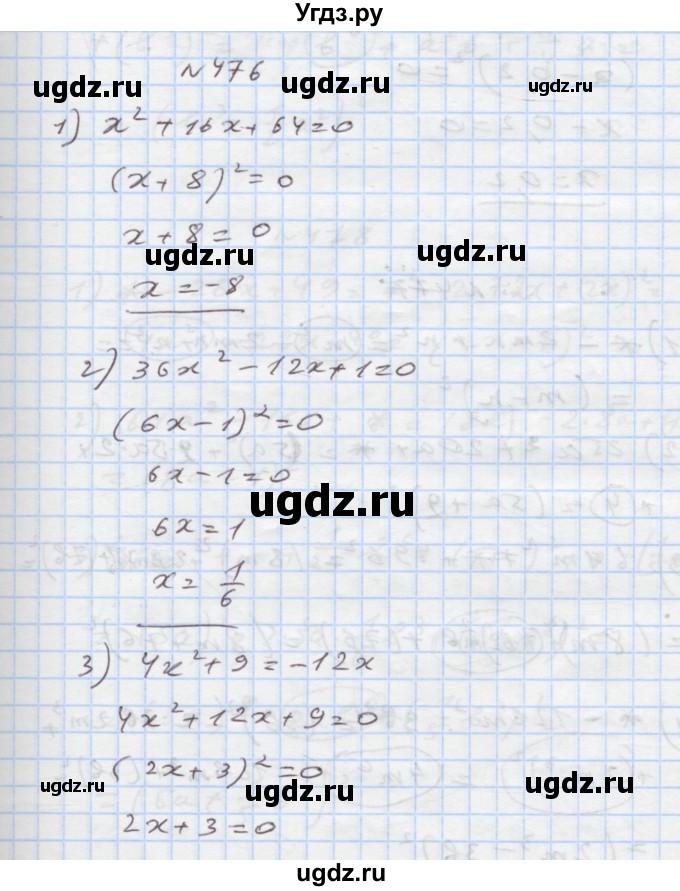 Угдз.ру
№476
1) x² + 16x + 64 = 0
(x + 8)² = 0
x + 8 = 0
x = -8
2) 36x² - 12x + 1 = 0
(6x - 1)² = 0
6x - 1 = 0
6x = 1
x = 1/6
3) 4x² + 9 = -12x
4x² + 12x + 9 = 0
(2x + 3)² = 0
2x + 3 = 0
ugdz.ru
ugdz.ru
ugdz.ru
ugdz.ru
ugdz.ru
ugdz.ru
ugdz.ru
ugdz.ru
ugdz.ru
ugdz.ru
ugdz.ru